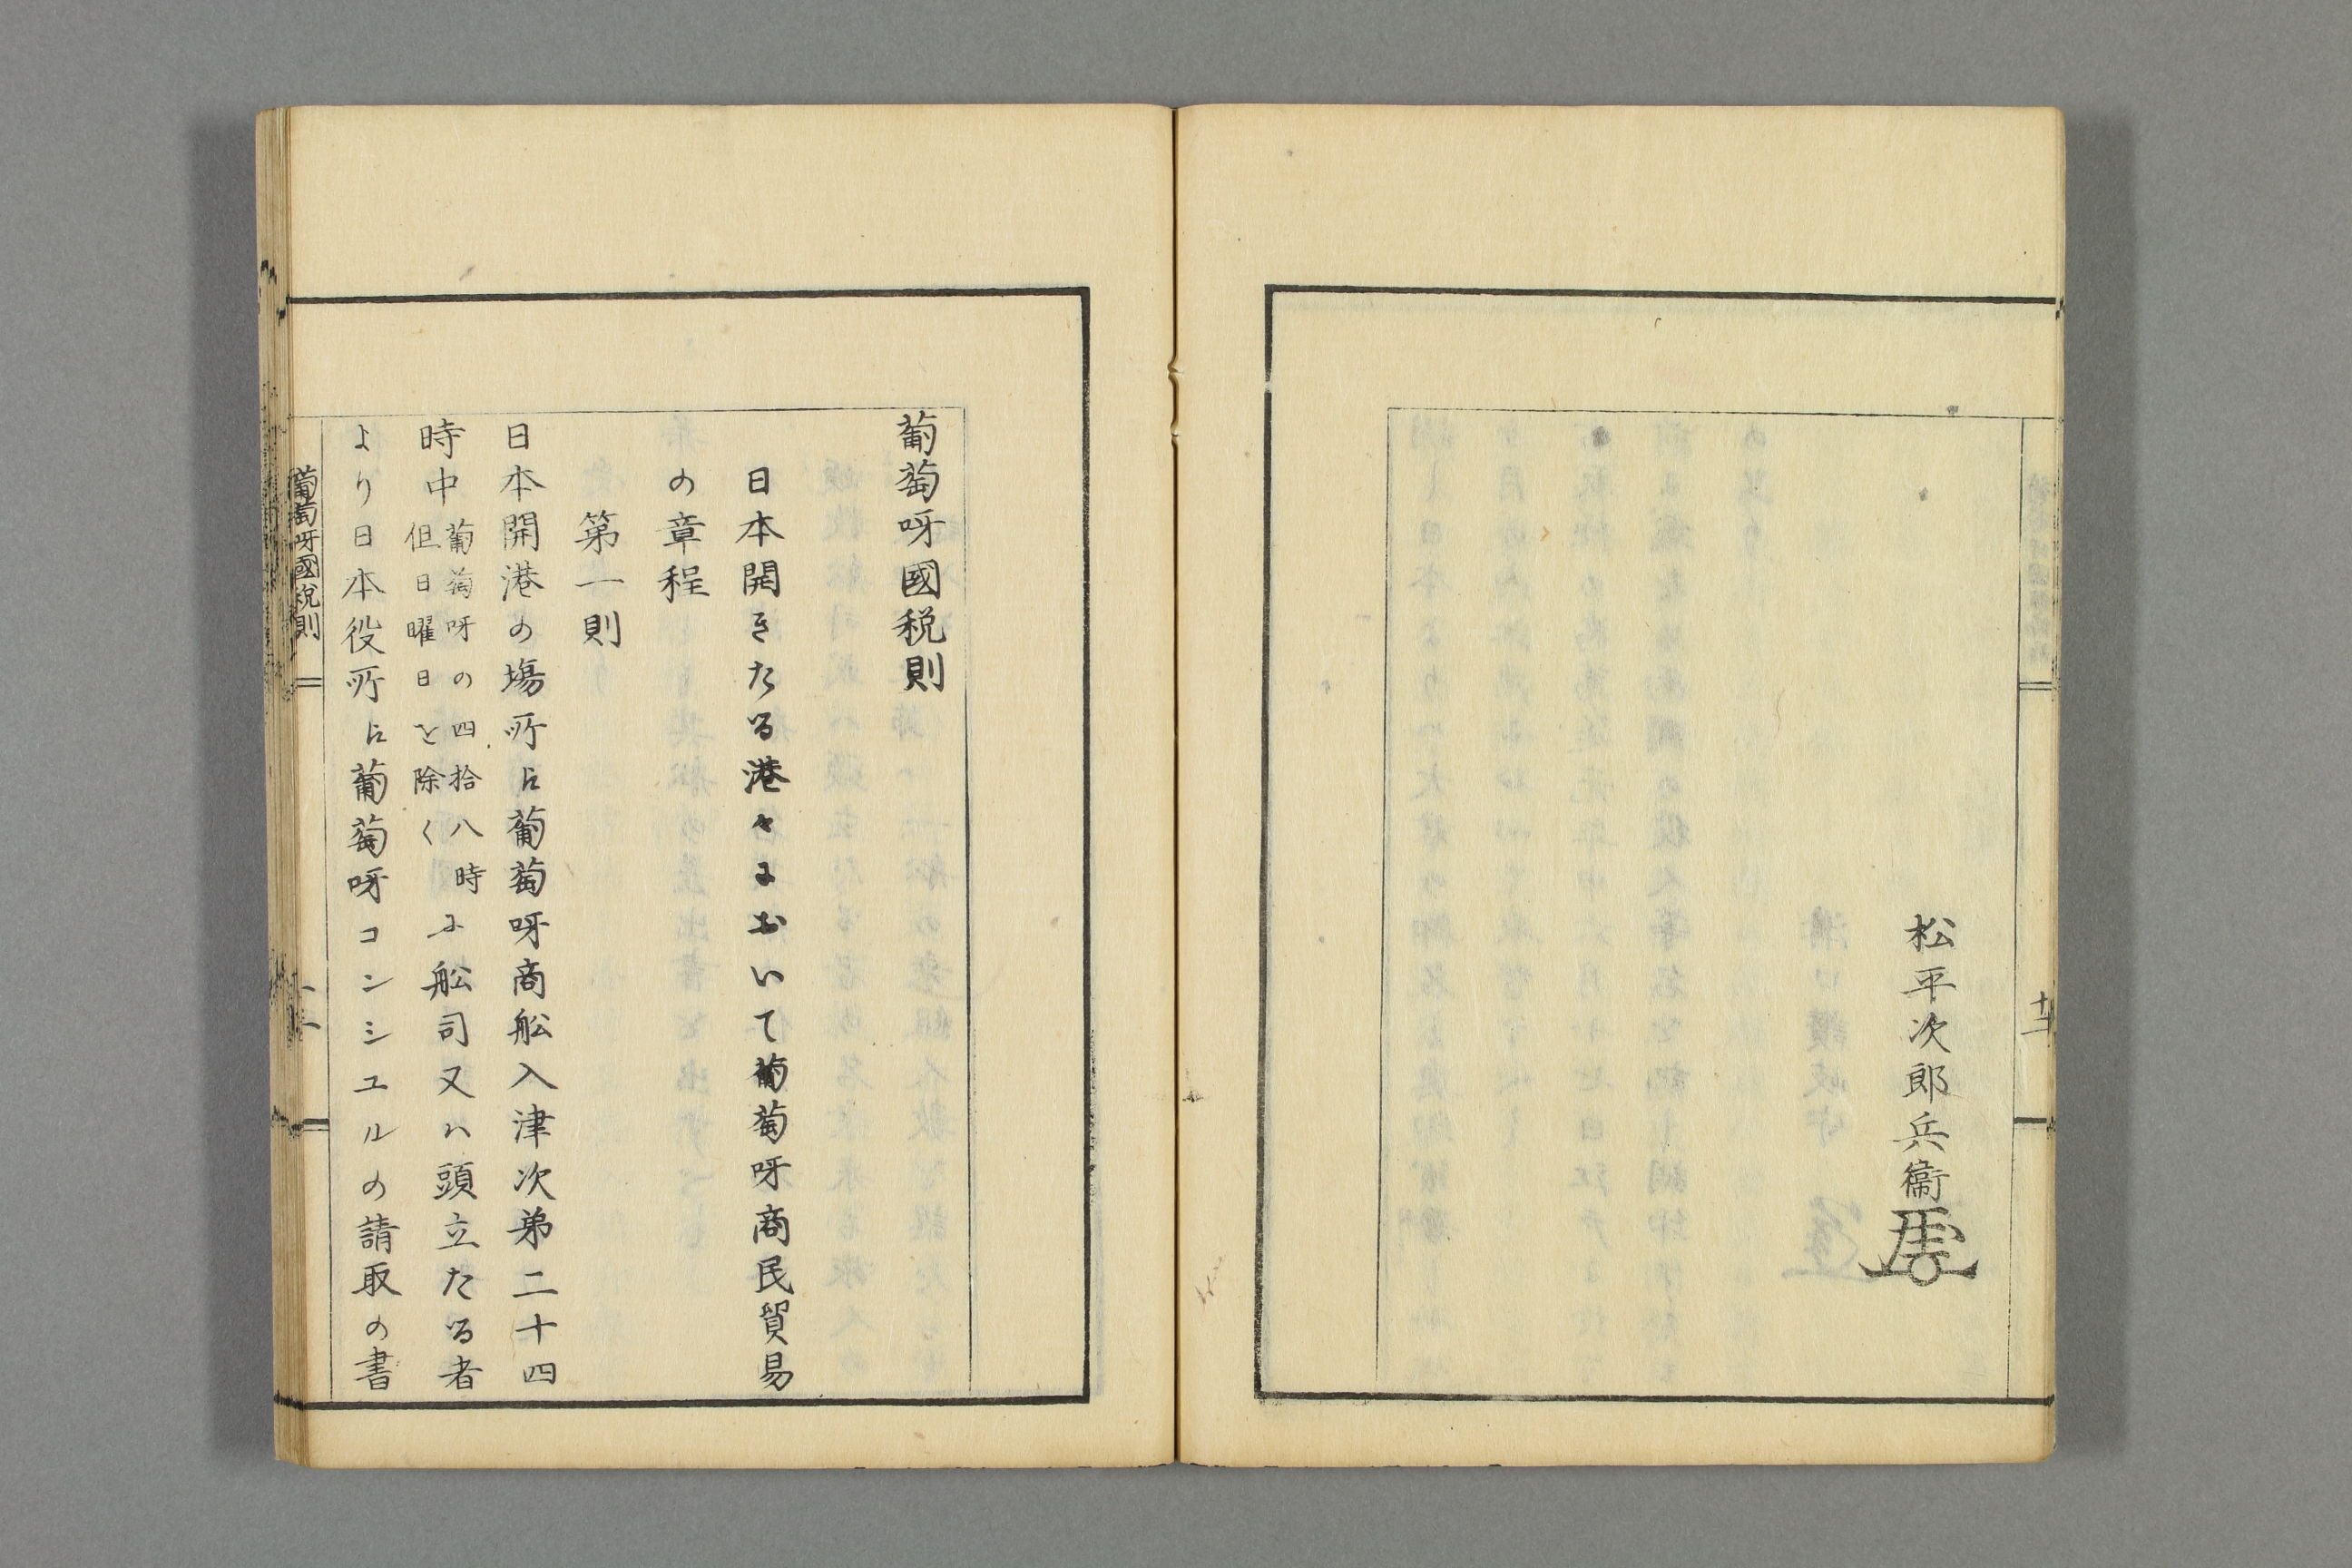 松平次郎兵衞
十二
葡萄呀國税則
日本開きたる港々において葡萄呀商民貿易
の章程
第一則
日本開港の塲所に葡萄呀商舩入津次弟二十四
時中葡萄呀の四拾八時但日曜日を除くに舩司又ハ頭立たる者
より日本役所に葡萄呀コンシユルの請取の書
葡萄呀國税則